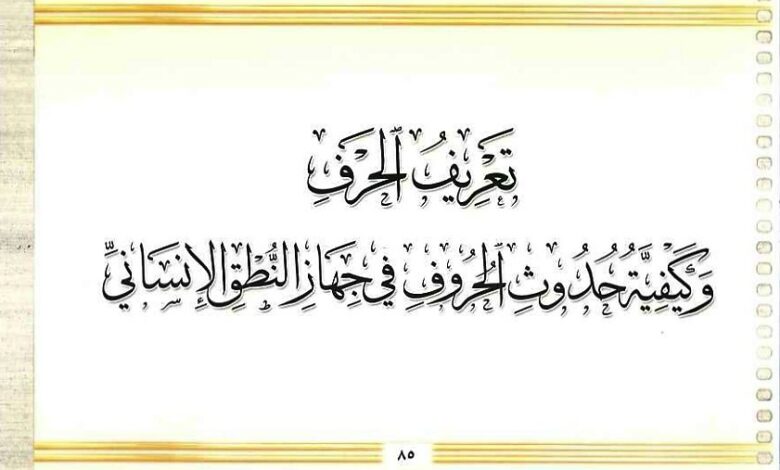 تَعْرِيفُ ٱلْحَرْفِ
وَكَيْفِيَّةُ حُدُوثِ ٱلْحُرُوفِ فِي جِهَازِ النُّطْقِ الْإِنسَانِيِّ
٨٥